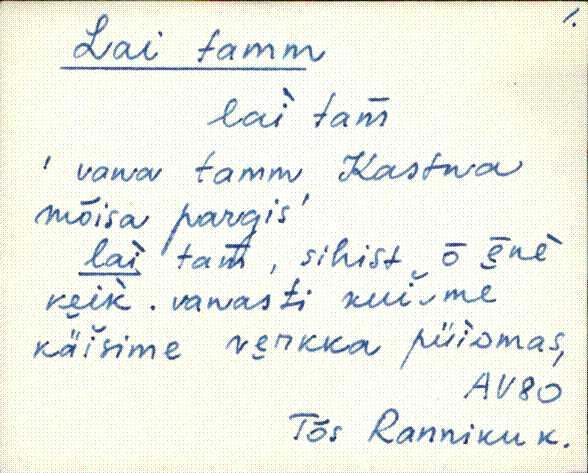 1.
Lai tamm
laì̬ tam̄
' vana tamm Kastna
mõisa pargis'
laì̬ tam̄, sihist ō ēnè
ke̮ik̀. vanasti kui me
käi̬sime ve̮rkka püìomas,
AV80
Tõs Ranniku k.